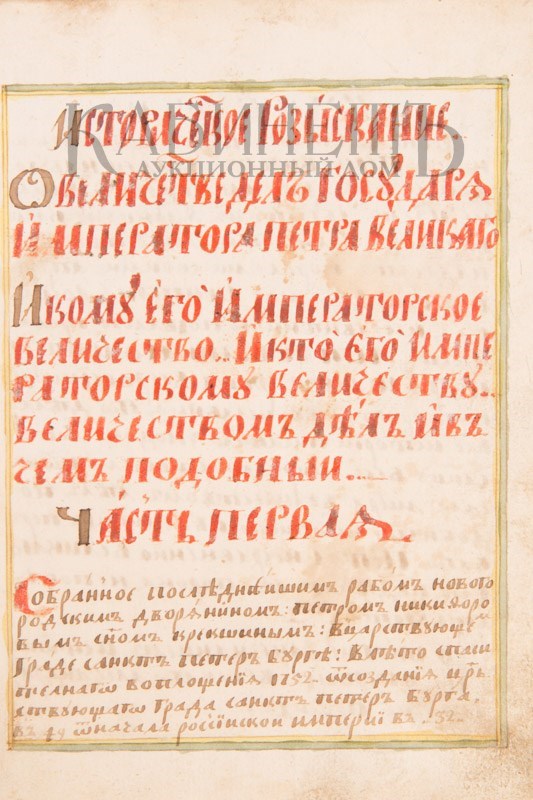 Историческое розыскание
КАБИНЕТЪ
АУКЦИОННЫЙ ДОМ
О величестве делъ государя
Императора Петра Великаго
И кому его Императорское
величество.. И кто его импе
раторскому величеству..
величествомъ дѣлъ и въ
чемъ подобныи...
Часть первая
Собранное послѣднѣишимъ рабомъ новаго
родскимъ дворяниномъ: петромъ никифоро
вымъ сн҃омъ крекшинымъ: вцарствующе
граде санктъ петеръ бургѣ: влѣто спаси
телнагѡ воплощенїя 1752. ѿсоздания
ствующагѡ града санктъ петеръ бурга.
въ 49 ѿначала россїискои империї въ .32.